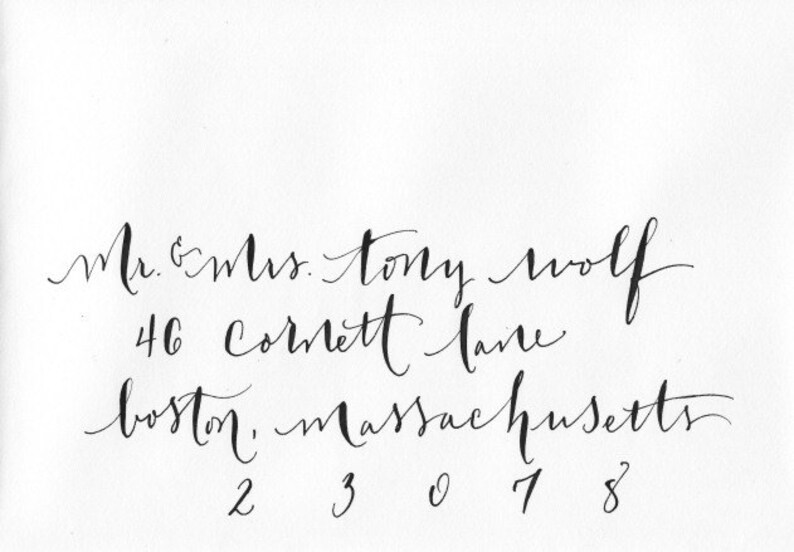 mr. & mrs. tony wolf
46 cornett lane
boston, massachusetts
2 3 0 7 8